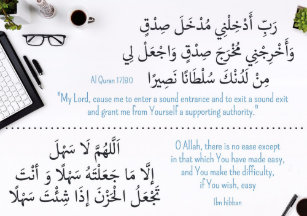 رَبِّ أَدْخِلْنِي مُدْخَلَ صِدْقٍ
وَأَخْرِجْنِي مُخْرَجَ صِدْقٍ وَاجْعَلْ لِي
مِنْ لَدُنْكَ سُلْطَانًا نَصِيرًا
Al Quran 17:80
"My Lord, cause me to enter a sound entrance and to exit a sound exit
and grant me from Yourself a supporting authority."
اَللَّهُمَّ لَا سَهْلَ
إِلَّا مَا جَعَلْتَهُ سَهْلًا وَ أَنْتَ
تَجْعَلُ الْحَزْنَ إِذَا شِئْتَ سَهْلًا
O Allah, there is no ease except
in that which You have made easy,
and You make the difficulty,
if You wish, easy
Ibn hibban